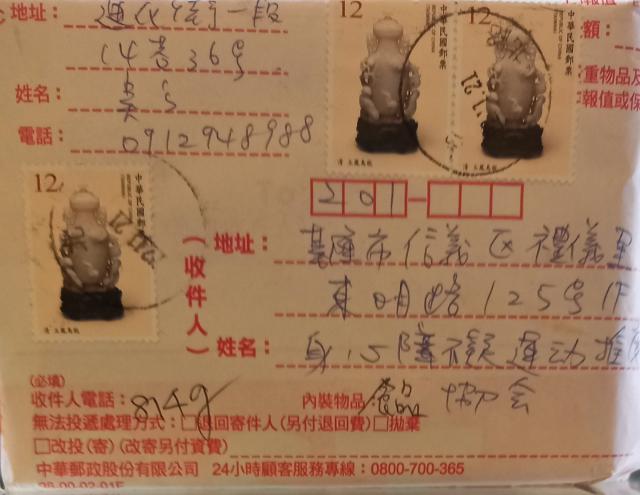 地址：
14巷36号
姓名：
電話：0912948988
12
中華民國郵票
REPUBLIC OF CHINA
12
中華民國郵票
REPUBLIC OF CHINA
清 玉鳳鳥瓶
清 玉鳳鳥瓶
額：
重物品及
報值或保
12
中華民國郵票
REPUBLIC OF CHINA
清 玉鳳鳥瓶
201-
（收件人）
地址：基隆市信義区禮儀里
東明路125号1F
姓名：身心障礙運動推
協会
(必填)
收件人電話：
內裝物品：
無法投遞處理方式：□退回寄件人(另付退回費)□拋棄
□改投(寄)(改寄另付資費)
中華郵政股份有限公司 24小時顧客服務專線：0800-700-365